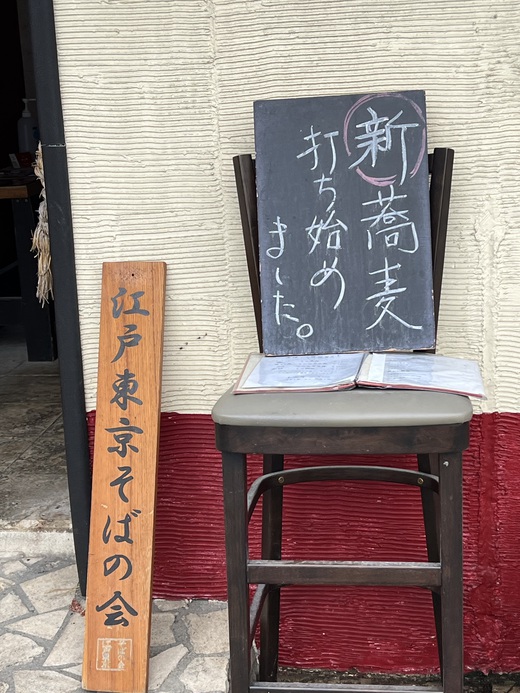 新蕎麦
打ち始め
ました。
江戸東京そばの会